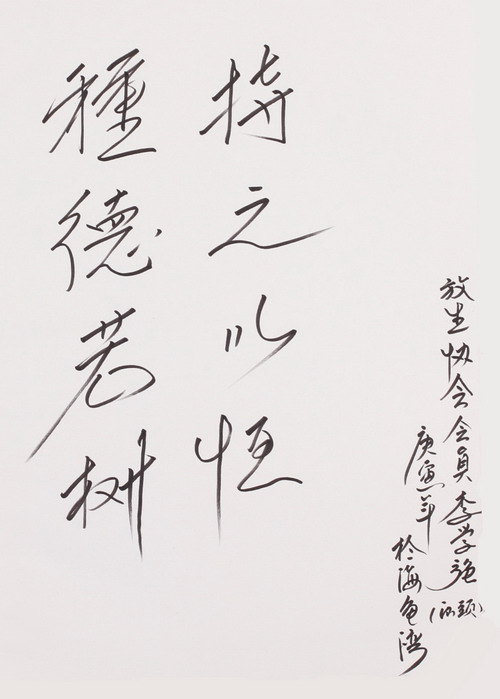 放生协会会员李学强(汕頭)
庚寅年
於海龟湾
持之以恒
種德若树